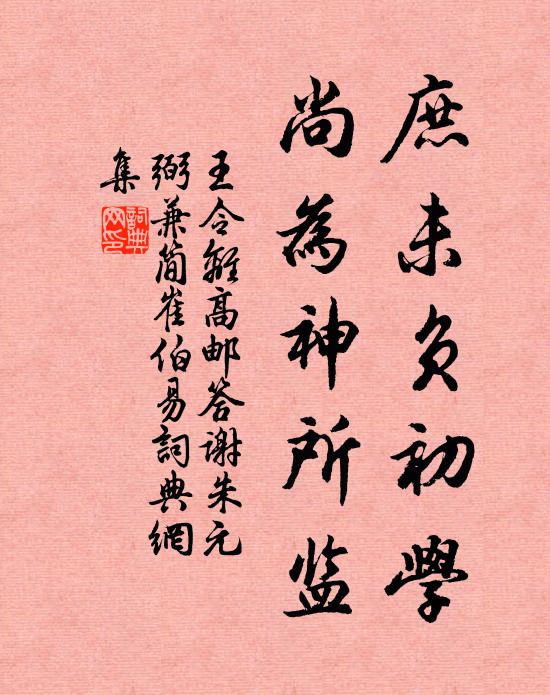 庶未负初學
尚為神所监
王令離高邮答谢朱元
弼兼简崔伯易詞典網
集
詞典
网印